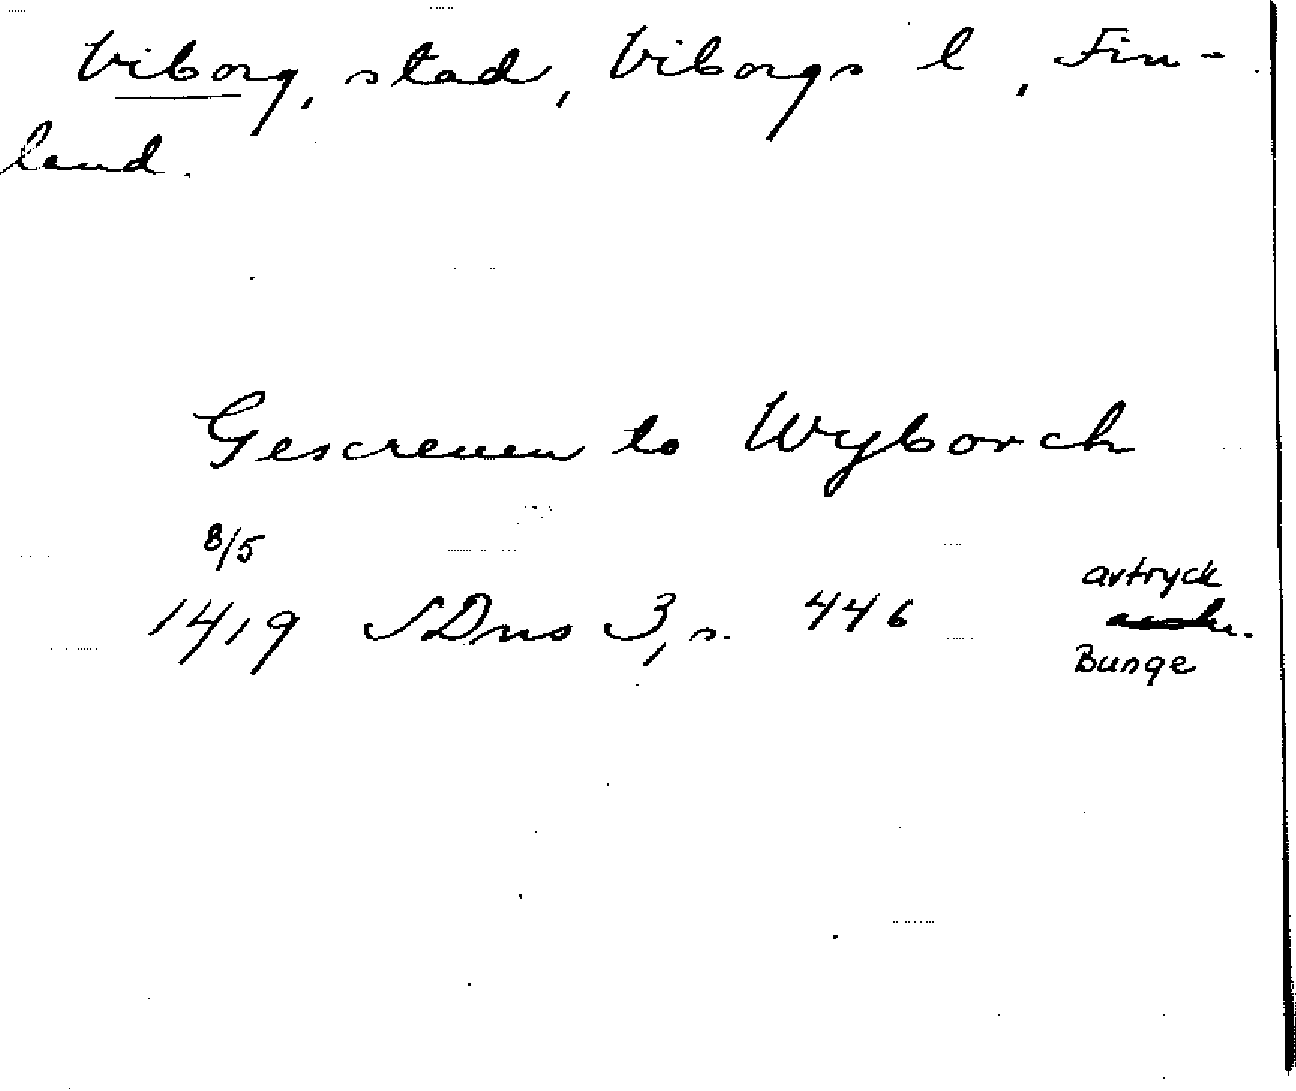 Viborg, stad, Viborgs l, Fin-
land.
Gescreuen to Wyborch
8/5
1419 SDns 3, s. 446
avtryck
Bunge